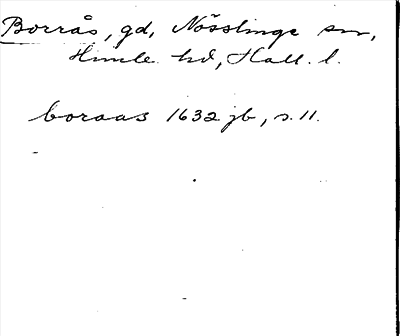 Borrås, gd, Nösslinge sn,
Himle hd, Hall. l.
boraas 1632 jb, s. 11.